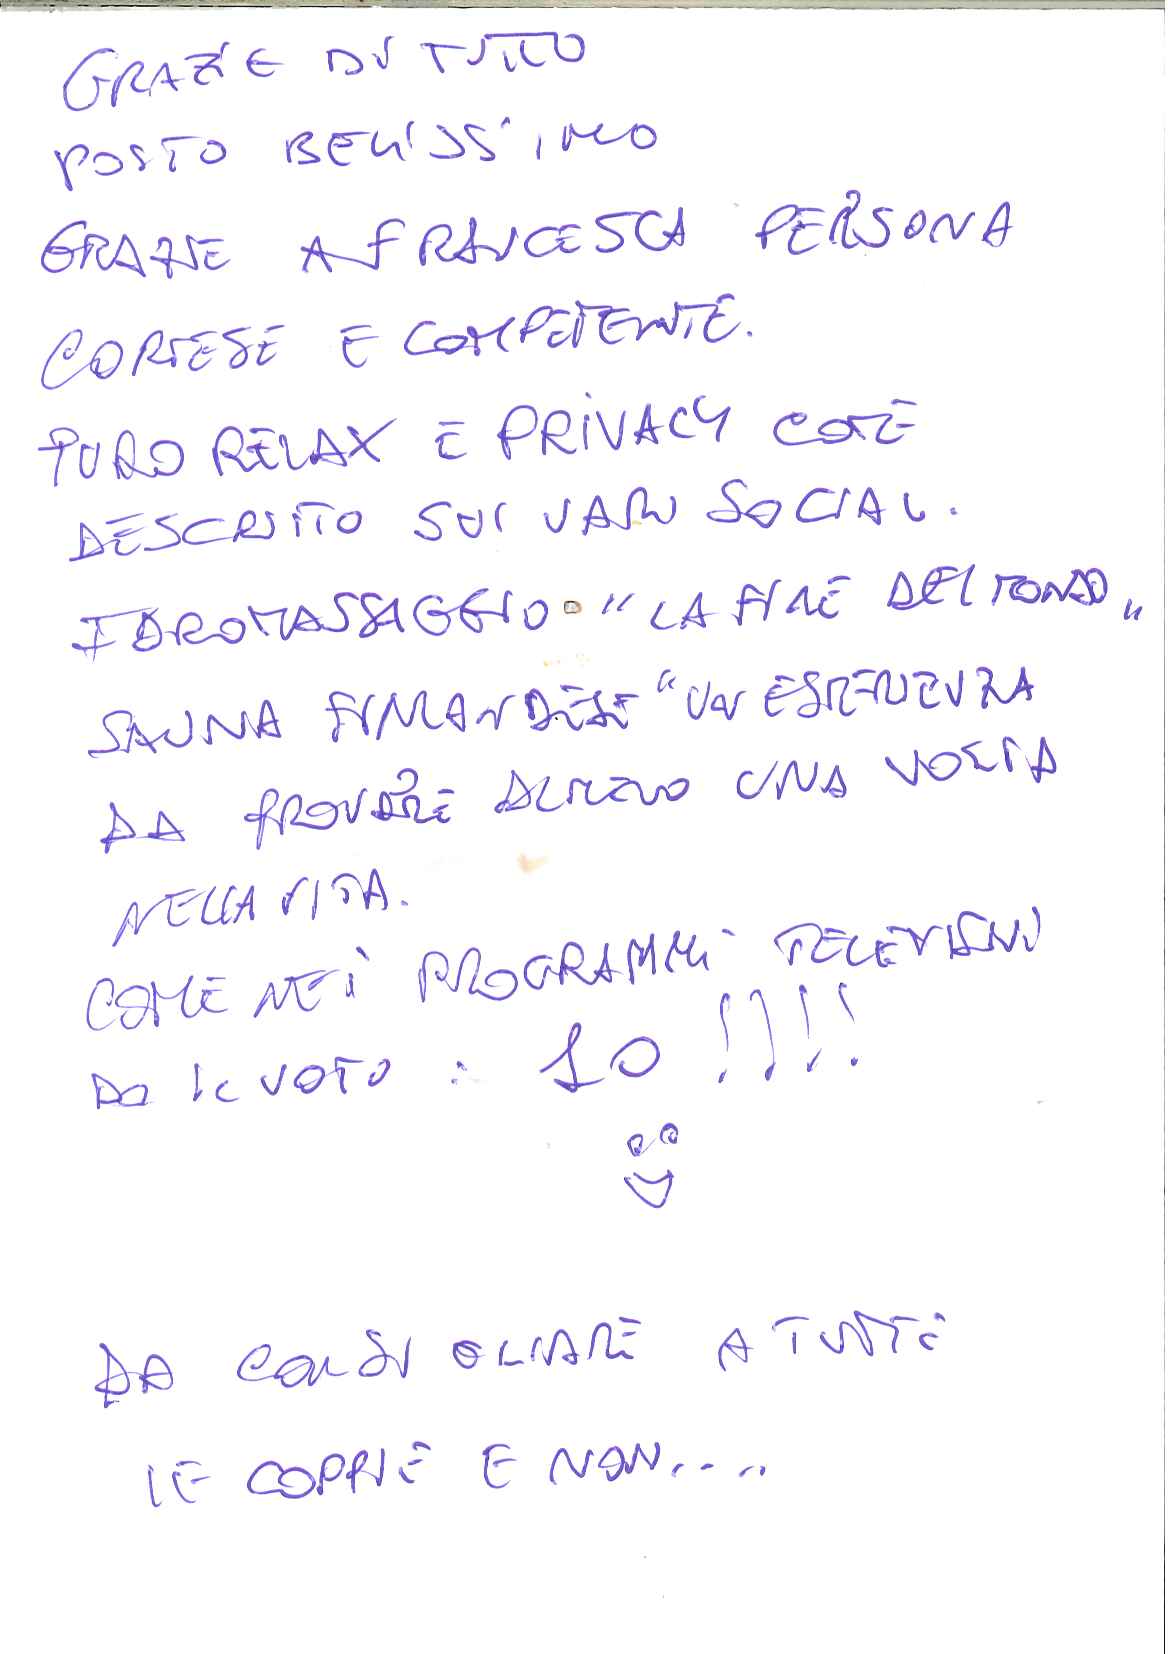 GRAZIE DI TUTTO
POSTO BELLISSIMO
GRAZIE A FRANCESCA PERSONA
CORTESE E COMPETENTE.
PURO RELAX E PRIVACY COME
DESCRITTO SUI VARI SOCIAL.
IDROMASSAGGIO - "LA FINE DEL MONDO"
SAUNA FINLANDESE "UN ESPERIENZA
DA PROVARE ALMENO UNA VOLTA
NELLA VITA.
COME NEI PROGRAMMI TELEVISIVI
DO IL VOTO : 10 !!!!
DA CONSIGLIARE A TUTTE
LE COPPIE E NON....